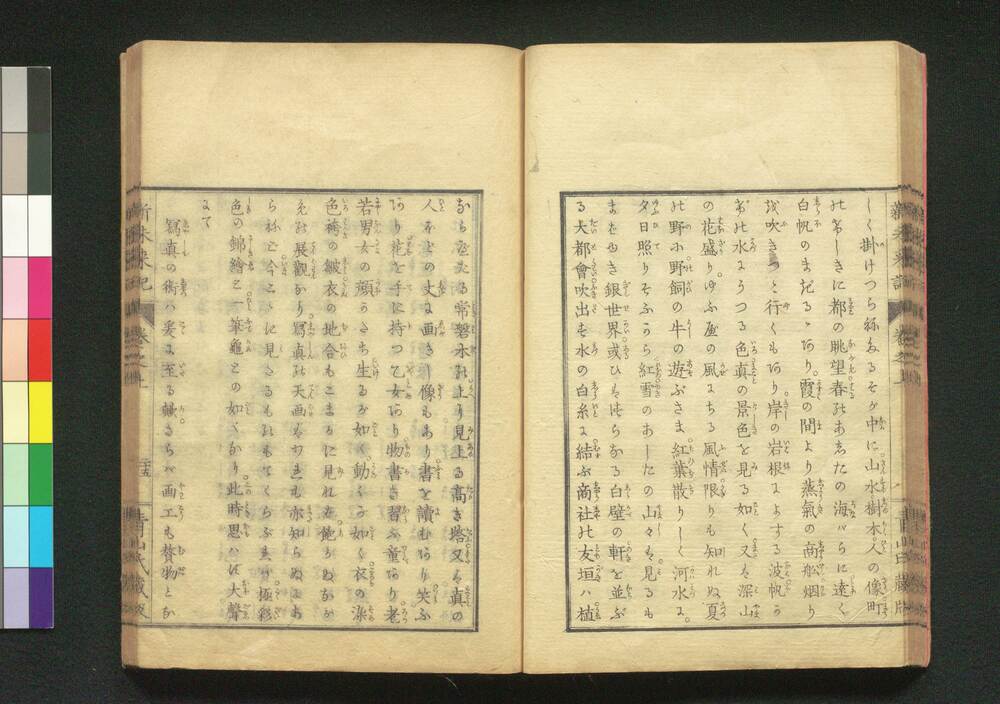 しく掛けつらねたるその中に。山水樹木。人の像。町
のけしきに都の眺望春のあしたの海ばらに遠く
白帆のま記るゝあり。霞の間より蒸氣の商舩烟り
を吹きつゝ行くもあり。岸の岩根によする波帆う
部の水にうつる色真の景色を見る如く又は深山
の花盛り。ゆふ座の風にちる風情限りも知れぬ夏
の野に野飼の牛の遊ぶさま。紅葉散りしく河水に。
夕日照りそふうら紅雪のあしたの山々は。見るも
まばゆき銀世界。或ひははしらなる白壁の軒を並ぶ
る大都會。吹出す水の白糸に結ぶ商社の友垣は。植
ならべたる常磐木の上より見上る高き塔。又は真の
人ほどの丈に画き像もあり。書を讀むあり。笑ふ
あり。花を手に持つ乙女あり。物書き習ふ童あり。老
若男女の顔かたち。生るが如く動く如く。衣の染
色袴の皺衣の地合もこまかに見れど飽かぬなが
めの展觀なり。寫真の天画はすこしも亦知らぬにあ
らねど。今こゝに見たるものもてくらぶれば。極彩
色の錦繪と一筆龜との如くなり。此時思はず大聲
にて
寫真の術は爰に至る歟。さらば画工も贅物とな
新未来記
卷之上
二十五
青山氏蔵版